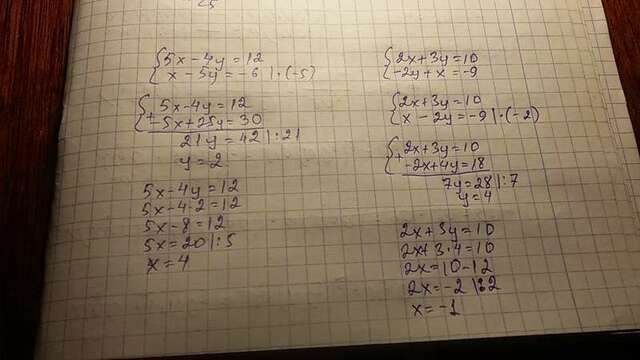 5x - 4y = 12
x - 5y = -6 |·(-5)
5x - 4y = 12
+ -5x + 25y = 30
21y = 42 |:21
y = 2
5x - 4y = 12
5x - 4·2 = 12
5x - 8 = 12
5x = 20 |:5
x = 4
2x + 3y = 10
-2y + x = -9
2x + 3y = 10
x - 2y = -9 |·(-2)
2x + 3y = 10
+ -2x + 4y = 18
7y = 28 |:7
y = 4
2x + 3y = 10
2x + 3·4 = 10
2x = 10 - 12
2x = -2 |:2
x = -1